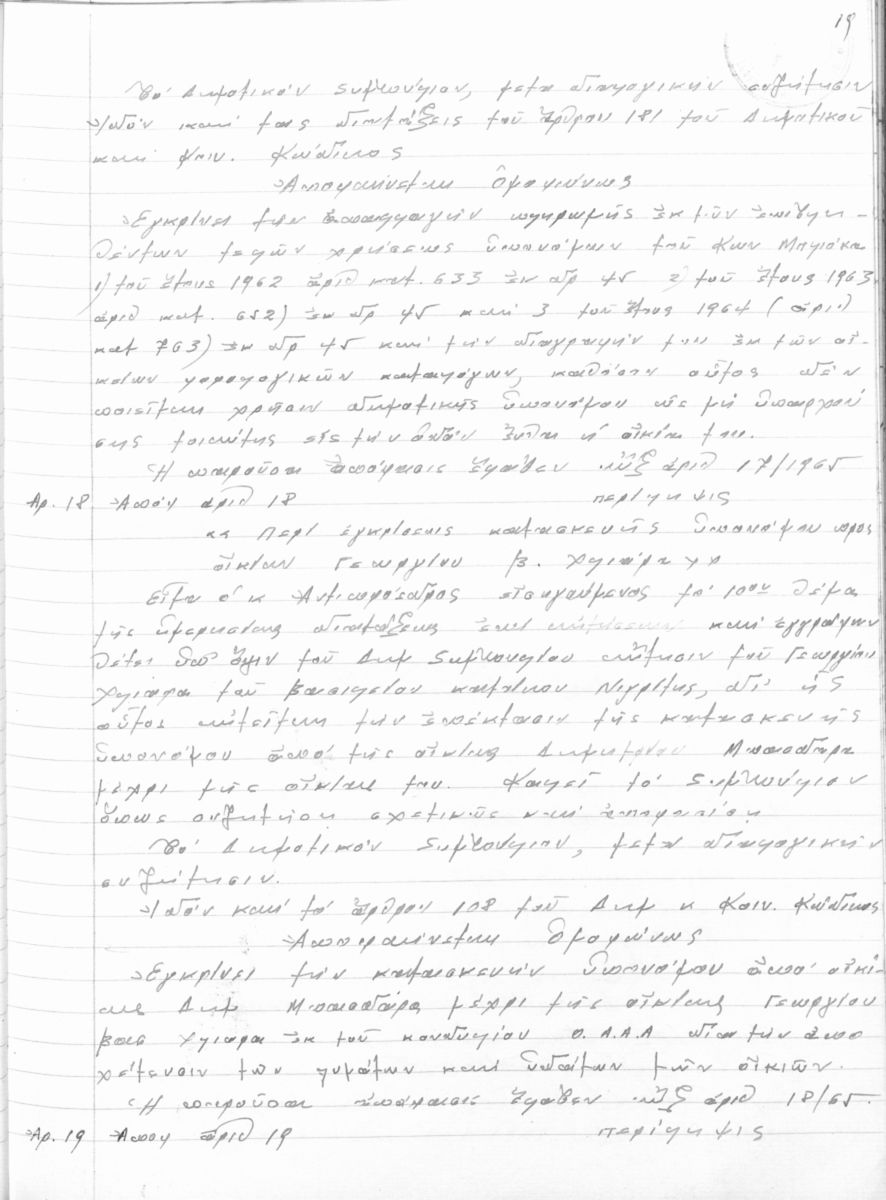 19
Τό Δημοτικόν Συμβούλιον, μετά διαλογικήν συζήτησιν
Ἰδόν καί τάς διατάξεις τοῦ ἄρθρου 181 τοῦ Δημοτικοῦ
καί Κοιν. Κώδικος
Ἀποφαίνεται Ὁμοφώνως
Ἐγκρίνει τήν ἀπαλλαγήν πληρωμῆς ἐκ τῶν ἐπιβλη-
θέντων τελῶν χρήσεως ὑπονόμων τοῦ Κων
1) τοῦ ἔτους 1962 ἀριθ κατ. 633 ἐκ δρ 45 2) τοῦ ἔτους 1963
ἀριθ κατ. 652) ἐκ δρ 45 καί 3 τοῦ ἔτους 1964 (ἀριθ
κατ 763) ἐκ δρ 45 καί τήν διαγραφήν του ἐκ τῶν οἰ-
κείων φορολογικῶν καταλόγων, καθόσον οὗτος δέν
ποιεῖται χρῆσιν δημοτικῆς ὑπονόμου ὡς μή ὑπαρχού
σης τοιαύτης εἰς τήν ὁδόν ἔνθα ἡ οἰκία του.
Ἡ παροῦσα ἀπόφασις ἔλαβεν αὔξ ἀριθ 17/1965
Ἀρ. 18 Ἀπόφ ἀριθ 18 περίληψις
«« Περί ἐγκρίσεως κατασκευῆς ὑπονόμου πρός
οἰκίαν Γεωργίου Β. Χλιάρα »»
Εἶτα ὁ κ Ἀντιπρόεδρος εἰσηγούμενος τό 10ον θέμα
τῆς ἡμερησίας διατάξεως καί ἐγγράφων
θέτει ὑπ' ὄψιν τοῦ Δημ Συμβουλίου αἴτησιν τοῦ Γεωργίου
Χλιαρα τοῦ Βασιλείου κατοίκου Νιγρίτης, δι' ἧς
οὗτος αἰτεῖται τήν ἐπέκτασιν τῆς κατασκευῆς
ὑπονόμου ἀπό τῆς οἰκίας Δημητρίου Μπασδάρα
μέχρι τῆς οἰκίας του. Καλεῖ τό Συμβούλιον
ὅπως συζητήση σχετικῶς καί ἀποφασίση
Τό Δημοτικόν Συμβούλιον, μετά διαλογικήν
συζήτησιν.
Ἰδόν καί τό ἄρθρον 108 τοῦ Δημ κ Κοιν. Κώδικος
Ἀποφαίνεται Ὁμοφώνως
Ἐγκρίνει τήν κατασκευήν ὑπονόμου ἀπό οἰκί-
ας Δημ Μπασδάρα μέχρι τῆς οἰκίας Γεωργίου
Βασ Χλιαρα ἐκ τοῦ κονδυλίου Ο.Α.Α.Α διά τήν ἀπο
χέτευσιν τῶν λυμάτων καί ὑδάτων τῶν οἰκιῶν.
Ἡ παροῦσα ἀπόφασις ἔλαβεν αὔξ ἀριθ 18/65.
Ἀρ. 19 Ἀποφ ἀριθ 19 περίληψις